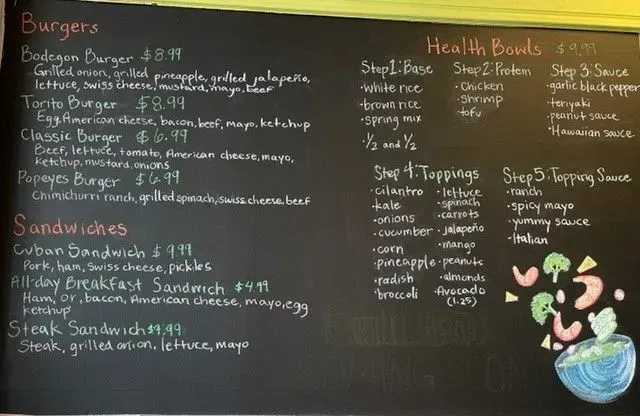 Burgers
Bodegon Burger $8.99
Grilled onion, grilled pineapple, grilled jalapeño,
lettuce, swiss cheese, mustard, mayo, beef
Torito Burger $8.99
Egg, American cheese, bacon, beef, mayo, ketchup
Classic Burger $6.99
Beef, lettuce, tomato, American cheese, mayo,
ketchup, mustard, onions
Popeyes Burger $6.99
Chimichurri ranch, grilled spinach, swiss cheese, beef
Sandwiches
Cuban Sandwich $9.99
Pork, ham, Swiss cheese, pickles
All-day Breakfast Sandwich $4.99
Ham, or, bacon, American cheese, mayo, egg
ketchup
Steak Sandwich $9.99
Steak, grilled onion, lettuce, mayo
Health Bowls $9.99
Step 1: Base
·white rice
·brown rice
·spring mix
·1/2 and 1/2
Step 2: Protein
·chicken
·shrimp
·tofu
Step 3: Sauce
·garlic black pepper
·teriyaki
·peanut sauce
·Hawaiian sauce
Step 4: Toppings
·cilantro
·kale
·onions
·cucumber
·corn
·pineapple
·radish
·broccoli
·lettuce
·spinach
·carrots
·jalapeño
·mango
·peanuts
·almonds
·Avocado
(1.25)
Step 5: Topping Sauce
·ranch
·spicy mayo
·yummy sauce
·Italian